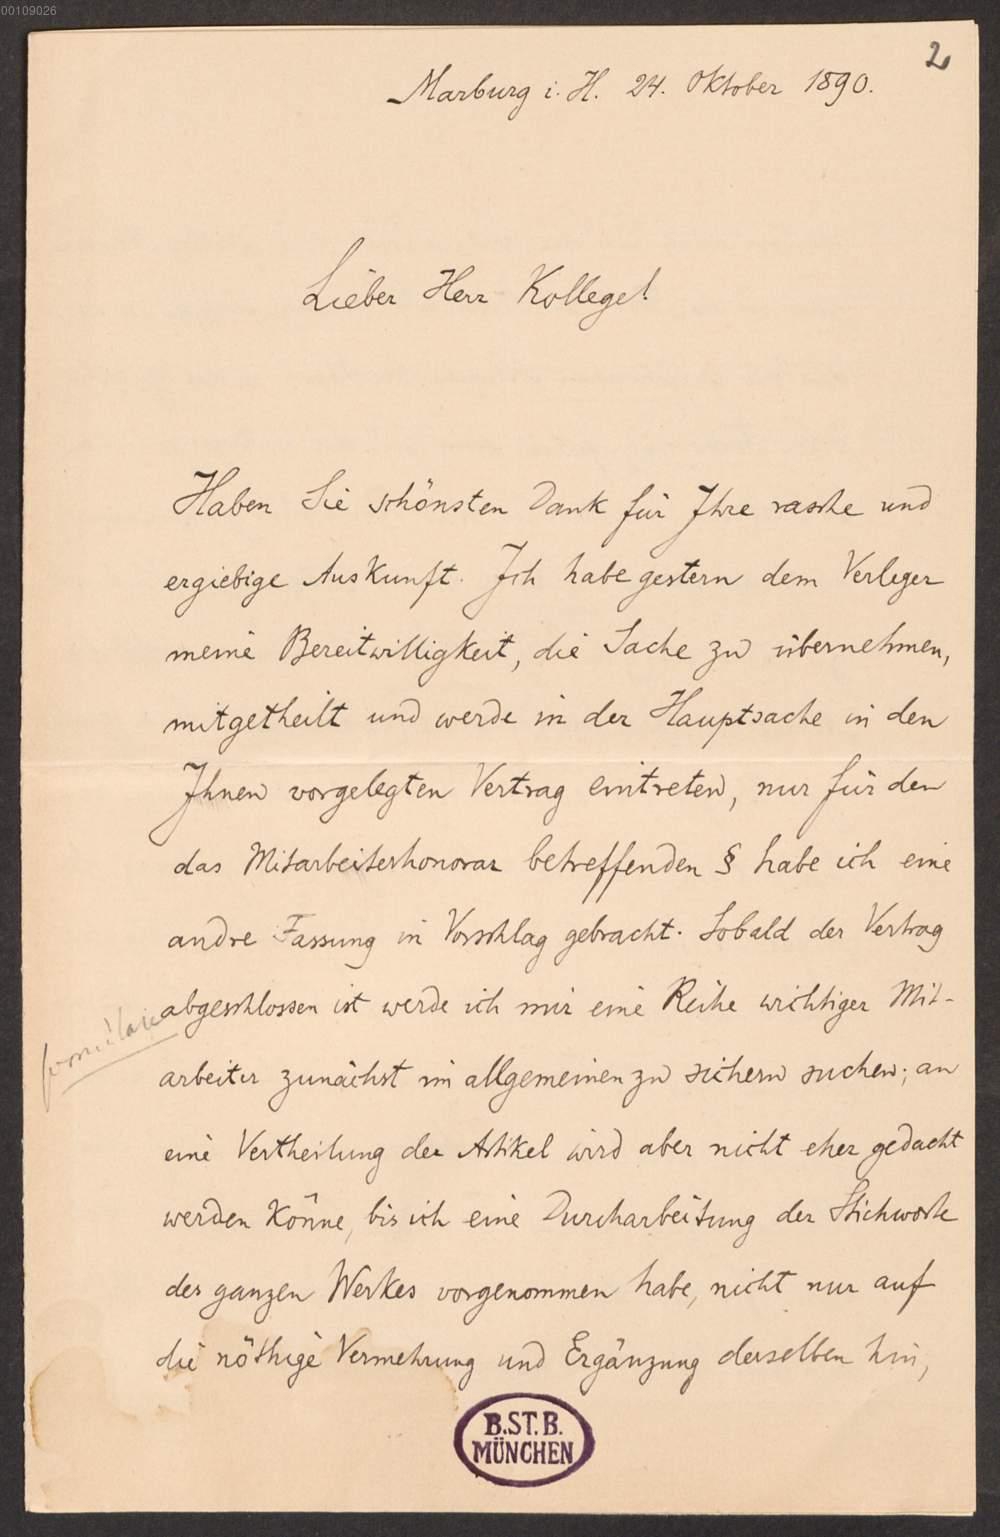 00109026
2
Marburg i. H. 24. Oktober 1890.
Lieber Herr Kollege!
Haben Sie schönsten Dank für Ihre rasche und
ergiebige Auskunft. Ich habe gestern dem Verleger
meine Bereitwilligkeit, die Sache zu übernehmen,
mitgetheilt und werde in der Hauptsache in den
Ihnen vorgelegten Vertrag eintreten, nur für den
das Mitarbeiterhonorar betreffenden § habe ich eine
andre Fassung in Vorschlag gebracht. Sobald der Vertrag
abgeschlossen ist werde ich mir eine Reihe wichtiger Mit-
arbeiter zunächst im allgemeinen zu sichern suchen; an
eine Vertheilung der Artikel wird aber nicht eher gedacht
werden könne, bis ich eine Durcharbeitung der Stichworte
des ganzen Werkes vorgenommen habe, nicht nur auf
die nöthige Vermehrung und Ergänzung derselben hin,
B.ST.B.
MÜNCHEN